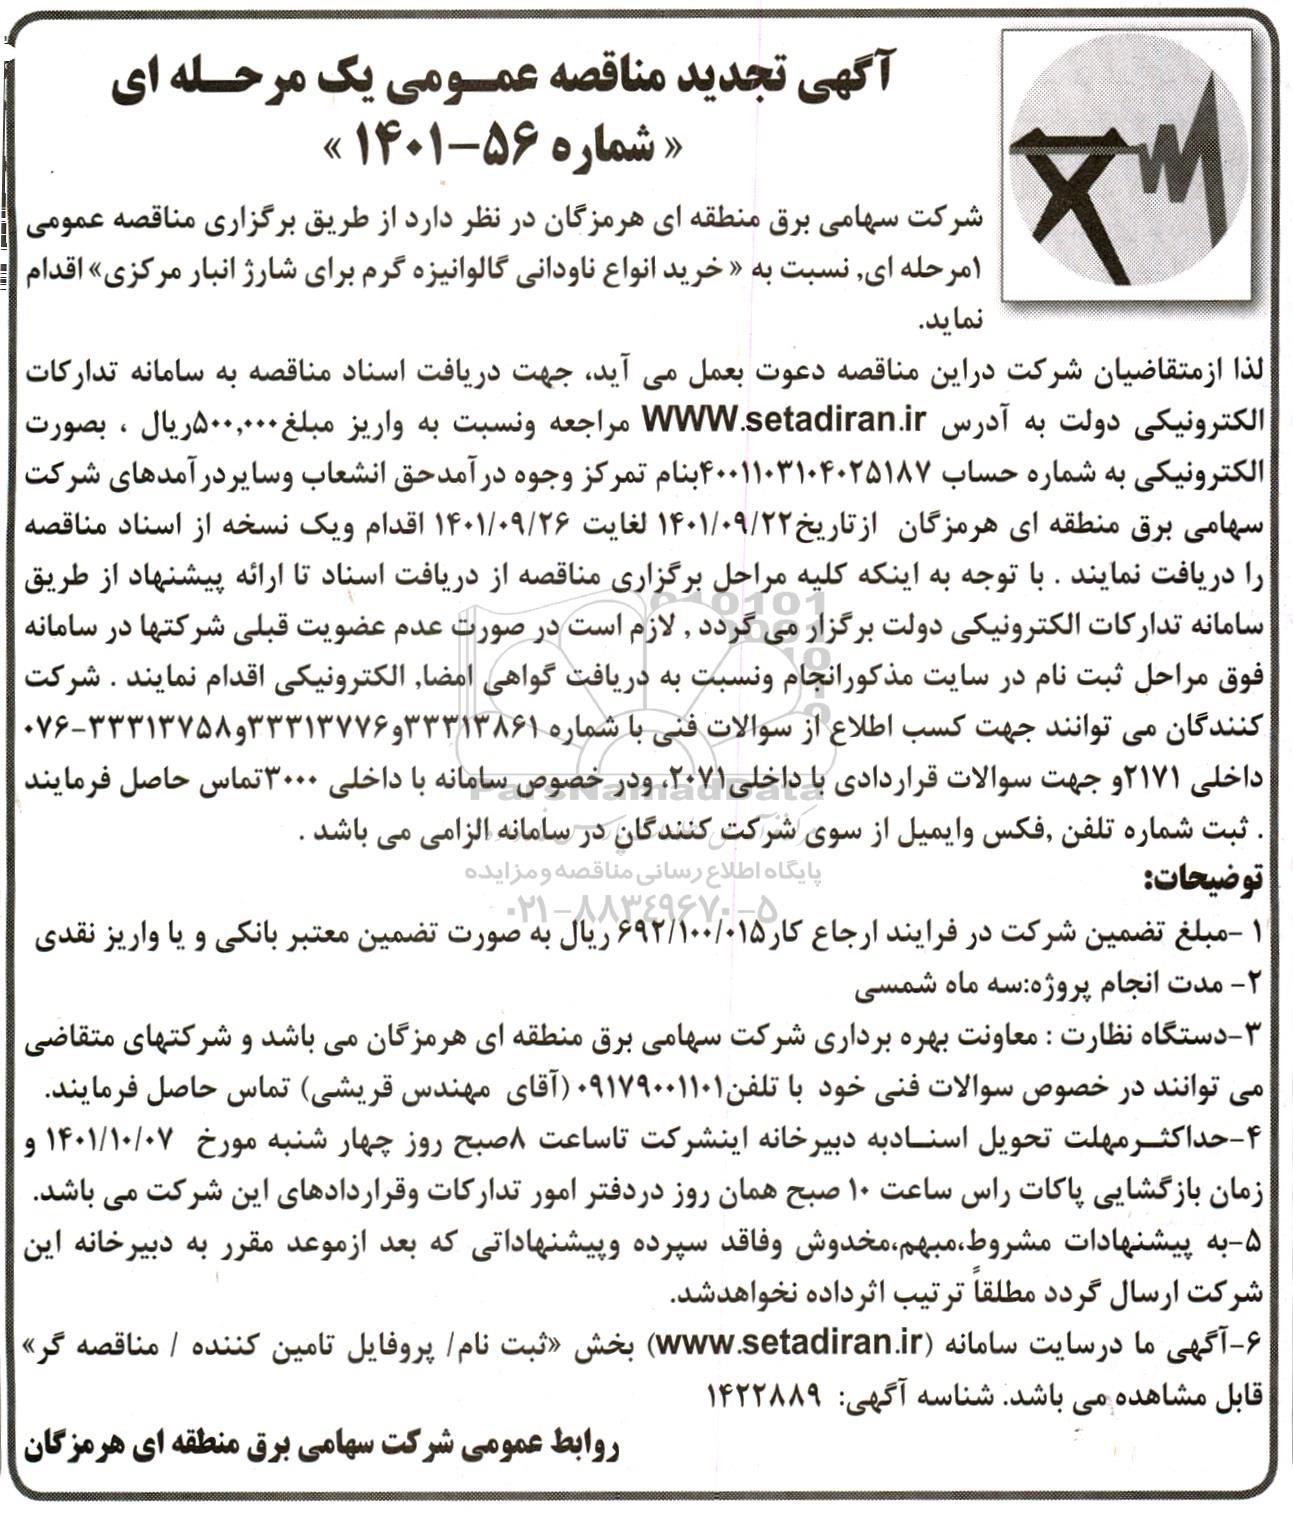 آگهی تجدید مناقصه عمـومی یک مرحـله ای
« شماره ۵۶-۱۴۰۱ »
شرکت سهامی برق منطقه ای هرمزگان در نظر دارد از طریق برگزاری مناقصه عمومی
۱مرحله ای, نسبت به « خرید انواع ناودانی گالوانیزه گرم برای شارژ انبار مرکزی» اقدام
نماید.
لذا ازمتقاضیان شرکت دراین مناقصه دعوت بعمل می آید، جهت دریافت اسناد مناقصه به سامانه تدارکات
الکترونیکی دولت به آدرس WWW.setadiran.ir مراجعه ونسبت به واریز مبلغ۵۰۰,۰۰۰ریال ، بصورت
الکترونیکی به شماره حساب ۴۰۰۱۱۰۳۱۰۴۰۲۵۱۸۷بنام تمرکز وجوه درآمدحق انشعاب وسایردرآمدهای شرکت
سهامی برق منطقه ای هرمزگان ازتاریخ۱۴۰۱/۰۹/۲۲ لغایت ۱۴۰۱/۰۹/۲۶ اقدام ویک نسخه از اسناد مناقصه
را دریافت نمایند . با توجه به اینکه کلیه مراحل برگزاری مناقصه از دریافت اسناد تا ارائه پیشنهاد از طریق
سامانه تدارکات الکترونیکی دولت برگزار می گردد , لازم است در صورت عدم عضویت قبلی شرکتها در سامانه
فوق مراحل ثبت نام در سایت مذکورانجام ونسبت به دریافت گواهی امضا, الکترونیکی اقدام نمایند . شرکت
کنندگان می توانند جهت کسب اطلاع از سوالات فنی با شماره ۳۳۳۱۳۸۶۱و۳۳۳۱۳۷۷۶و۳۳۳۱۳۷۵۸-۰۷۶
داخلی ۲۱۷۱و جهت سوالات قراردادی با داخلی۲۰۷۱، ودر خصوص سامانه با داخلی ۳۰۰۰تماس حاصل فرمایند
. ثبت شماره تلفن ,فکس وایمیل از سوی شرکت کنندگان در سامانه الزامی می باشد .
توضیحات:
۱ -مبلغ تضمین شرکت در فرایند ارجاع کار۶۹۲/۱۰۰/۰۱۵ ریال به صورت تضمین معتبر بانکی و یا واریز نقدی
۲- مدت انجام پروژه:سه ماه شمسی
۳-دستگاه نظارت : معاونت بهره برداری شرکت سهامی برق منطقه ای هرمزگان می باشد و شرکتهای متقاضی
می توانند در خصوص سوالات فنی خود با تلفن۰۹۱۷۹۰۰۱۱۰۱ (آقای مهندس قریشی) تماس حاصل فرمایند.
۴-حداکثـرمهلت تحویل اسنـادبه دبیرخانه اینشرکت تاساعت ۸صبح روز چهار شنبه مورخ ۱۴۰۱/۱۰/۰۷ و
زمان بازگشایی پاکات راس ساعت ۱۰ صبح همان روز دردفتر امور تدارکات وقراردادهای این شرکت می باشد.
۵-به پیشنهادات مشروط،مبهم،مخدوش وفاقد سپرده وپیشنهاداتی که بعد ازموعد مقرر به دبیرخانه این
شرکت ارسال گردد مطلقاً ترتیب اثرداده نخواهدشد.
۶-آگهی ما درسایت سامانه (www.setadiran.ir) بخش «ثبت نام/ پروفایل تامین کننده / مناقصه گر»
قابل مشاهده می باشد. شناسه آگهی: ۱۴۲۲۸۸۹
روابط عمومی شرکت سهامی برق منطقه ای هرمزگان
ParsNamadData
پایگاه اطلاع رسانی مناقصه و مزایده
۰۲۱-۸۸۳۴۹۶۷۰-۵